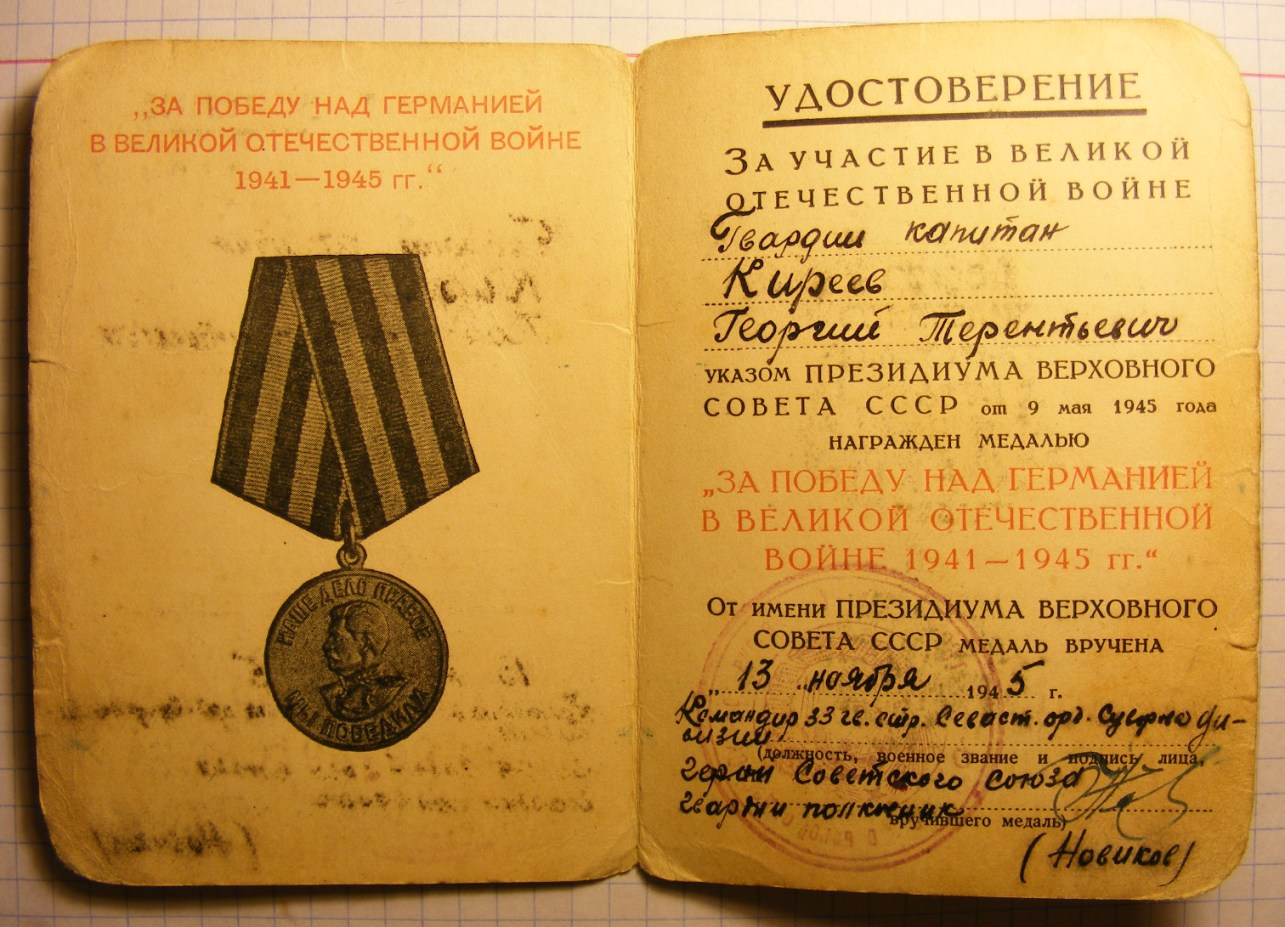 „ЗА ПОБЕДУ НАД ГЕРМАНИЕЙ
В ВЕЛИКОЙ ОТЕЧЕСТВЕННОЙ ВОЙНЕ
1941—1945 гг.“
НАШЕ ДЕЛО ПРАВОЕ
МЫ ПОБЕДИЛИ
УДОСТОВЕРЕНИЕ
ЗА УЧАСТИЕ В ВЕЛИКОЙ
ОТЕЧЕСТВЕННОЙ ВОЙНЕ
Гвардии капитан
Киреев
Георгий Терентьевич
УКАЗОМ ПРЕЗИДИУМА ВЕРХОВНОГО
СОВЕТА СССР от 9 мая 1945 года
НАГРАЖДЕН МЕДАЛЬЮ
„ЗА ПОБЕДУ НАД ГЕРМАНИЕЙ
В ВЕЛИКОЙ ОТЕЧЕСТВЕННОЙ
ВОЙНЕ 1941—1945 гг.“
ОТ ИМЕНИ ПРЕЗИДИУМА ВЕРХОВНОГО
СОВЕТА СССР МЕДАЛЬ ВРУЧЕНА
„13 ноября 1945 г.
Командир 33 гв. стр. Севаст. орд. ди-
визии
(должность, военное звание и подпись лица,
Герой Советского союза
Гвардии полковник
вручившего медаль)
(Новиков)